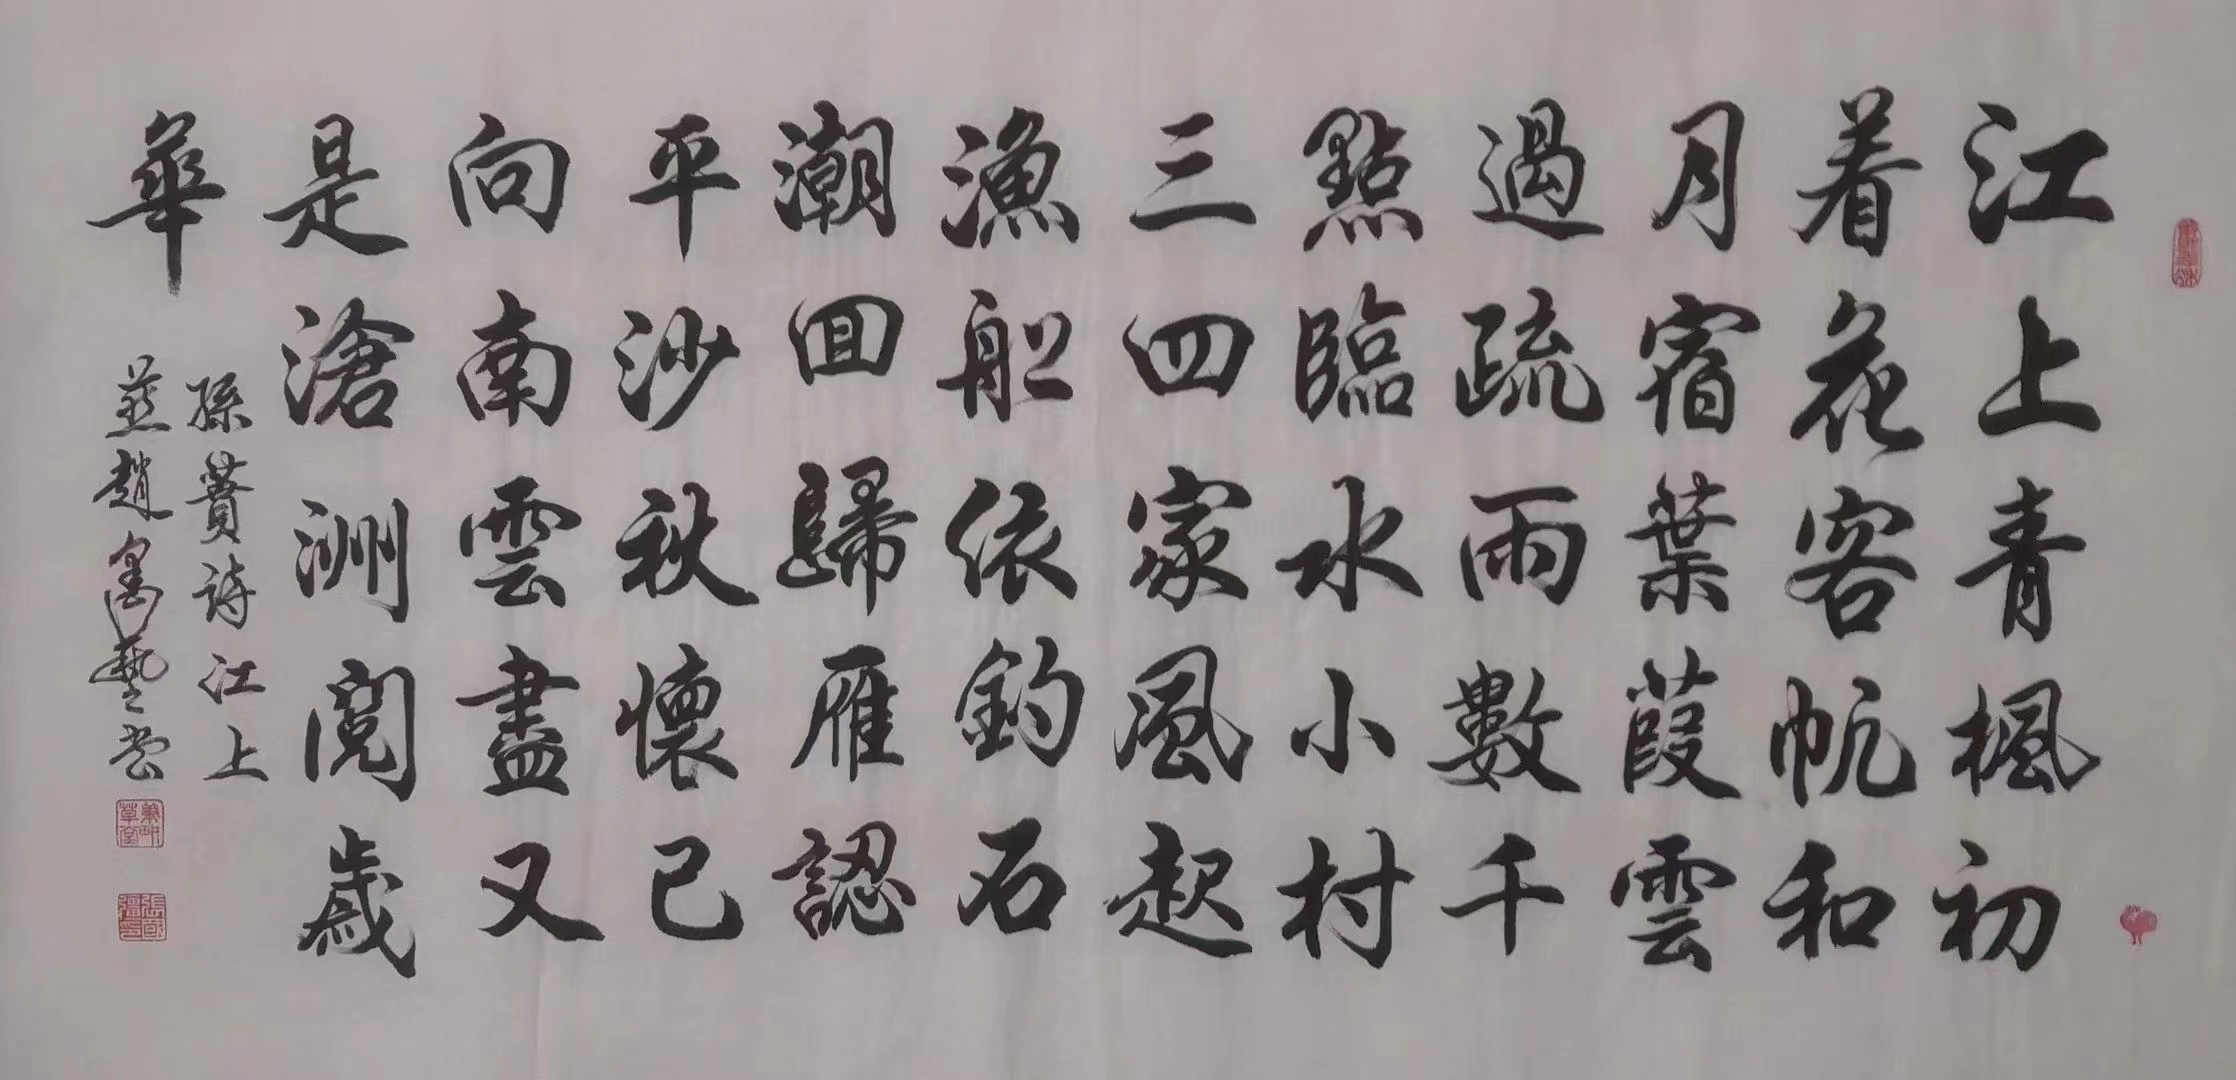 江上青楓初
着花客帆和
月宿葉葭雲
過疏雨數千
點臨水小村
三四家風起
漁船依釣石
潮回歸雁認
平沙秋懷已
向南雲盡又
是滄洲閱歲
華
孫蕡詩江上
燕趙